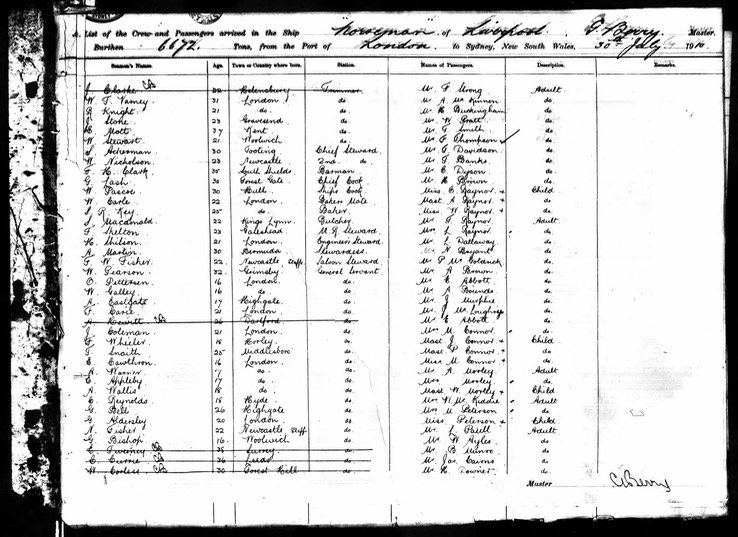 A List of the Crew and Passengers arrived in the Ship Norseman of Liverpool, Berry, Master
Burthen 6672. Tons, from the Port of London to Sydney, New South Wales, 30th July 1910.
Seaman's Names. Age. Town or Country where born. Station. Names of Passengers. Description. Remarks.
J Clarke 22 Trimmer Mr F Strong Adult
W. T. Varney 31 London do. Mr A McKinnon do.
R Knight 21 do. do. Mr H Buckingham do.
J Stone 23 Gravesend do. Mr W Pratt do.
E. Mott 37 Kent do. Mr T Smith do.
W Stewart 21 Woolwich do. Mr F Thompson do.
J Ackerman 30 Tooting Chief Steward Mr F Davidson do.
W Nicholson 23 Newcastle 2nd do. Mr T Banks do.
F. H. Clark 35 South Shields Barman Mr C Dyson do.
G Cash 30 Forest Gate Chief Cook Mr H Brown do.
W Pascoe 30 Hull Ships Cook Miss C Raynor Child
W Earle 22 London Bakers Mate Mast A Raynor do.
J R Key 25 do. Baker Miss W Raynor do.
J Macdonald 22 Kings Lynn Butcher Mr T Raynor Adult
F Shelton 23 Gateshead M.R. Steward Mrs L Raynor do.
H Shilson 21 London Engineers Steward Mr L Dallaway do.
A Marton 30 Bermuda Stewardess Mr N Bryant do.
F W Fisher 22 Newcastle Staffs Saloon Steward Mr P McGoldrick do.
W Pearson 32 Grimsby General Servant Mr A Brown do.
O Petterson 16 London do. Mr C Abbott do.
W Galley 16 do. do. Mr A Bounds do.
A Eastgate 17 Highgate do. Mr J Murphie do.
F Carle 21 London do. Mr J McLoughrey do.
A Hewitt 26 Dartford do. Mr E Abbott do.
J Coleman 21 London do. Mrs M Connor do.
F Wheeler 18 Horley do. Mast J Connor Child
T Snaith 25 Middlesboro do. Mast P Connor do.
E Cawthron 16 London do. Miss M Connor do.
A Warner 17 do. do. Mr A Morley Adult
C Appleby 17 do. do. Mrs Morley do.
A Wallis 18 do. do. Mast W Morley Child
E Reynolds 18 Hyde do. Mrs W McKiddie Adult
G Bell 26 Highgate do. Mrs M Peterson do.
G Aldersley 20 London do. Miss Peterson Child
N Fisher 22 Newcastle Staffs do. Mr L Patell Adult
G Bishop 16 Woolwich do. Mr W Ayles do.
C Sweeney 38 Surrey do. Mr B Munro do.
C Currie 36 Leeds do. Mr Jas Cairns do.
W Corless 30 Forest Hill do. Mr H Downer do.
Master C Berry